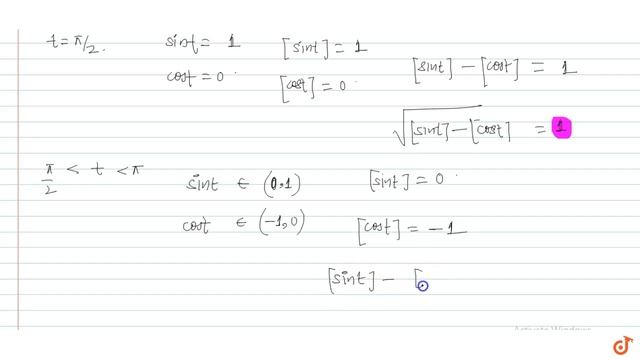 t = π/2. sint = 1 [sint] = 1
cost = 0 [cost] = 0 [sint] - [cost] = 1
√[sint] - [cost] = 1
π/2 < t < π sint ∈ (0,1) [sint] = 0
cost ∈ (-1,0) [cost] = -1
[sint] - [